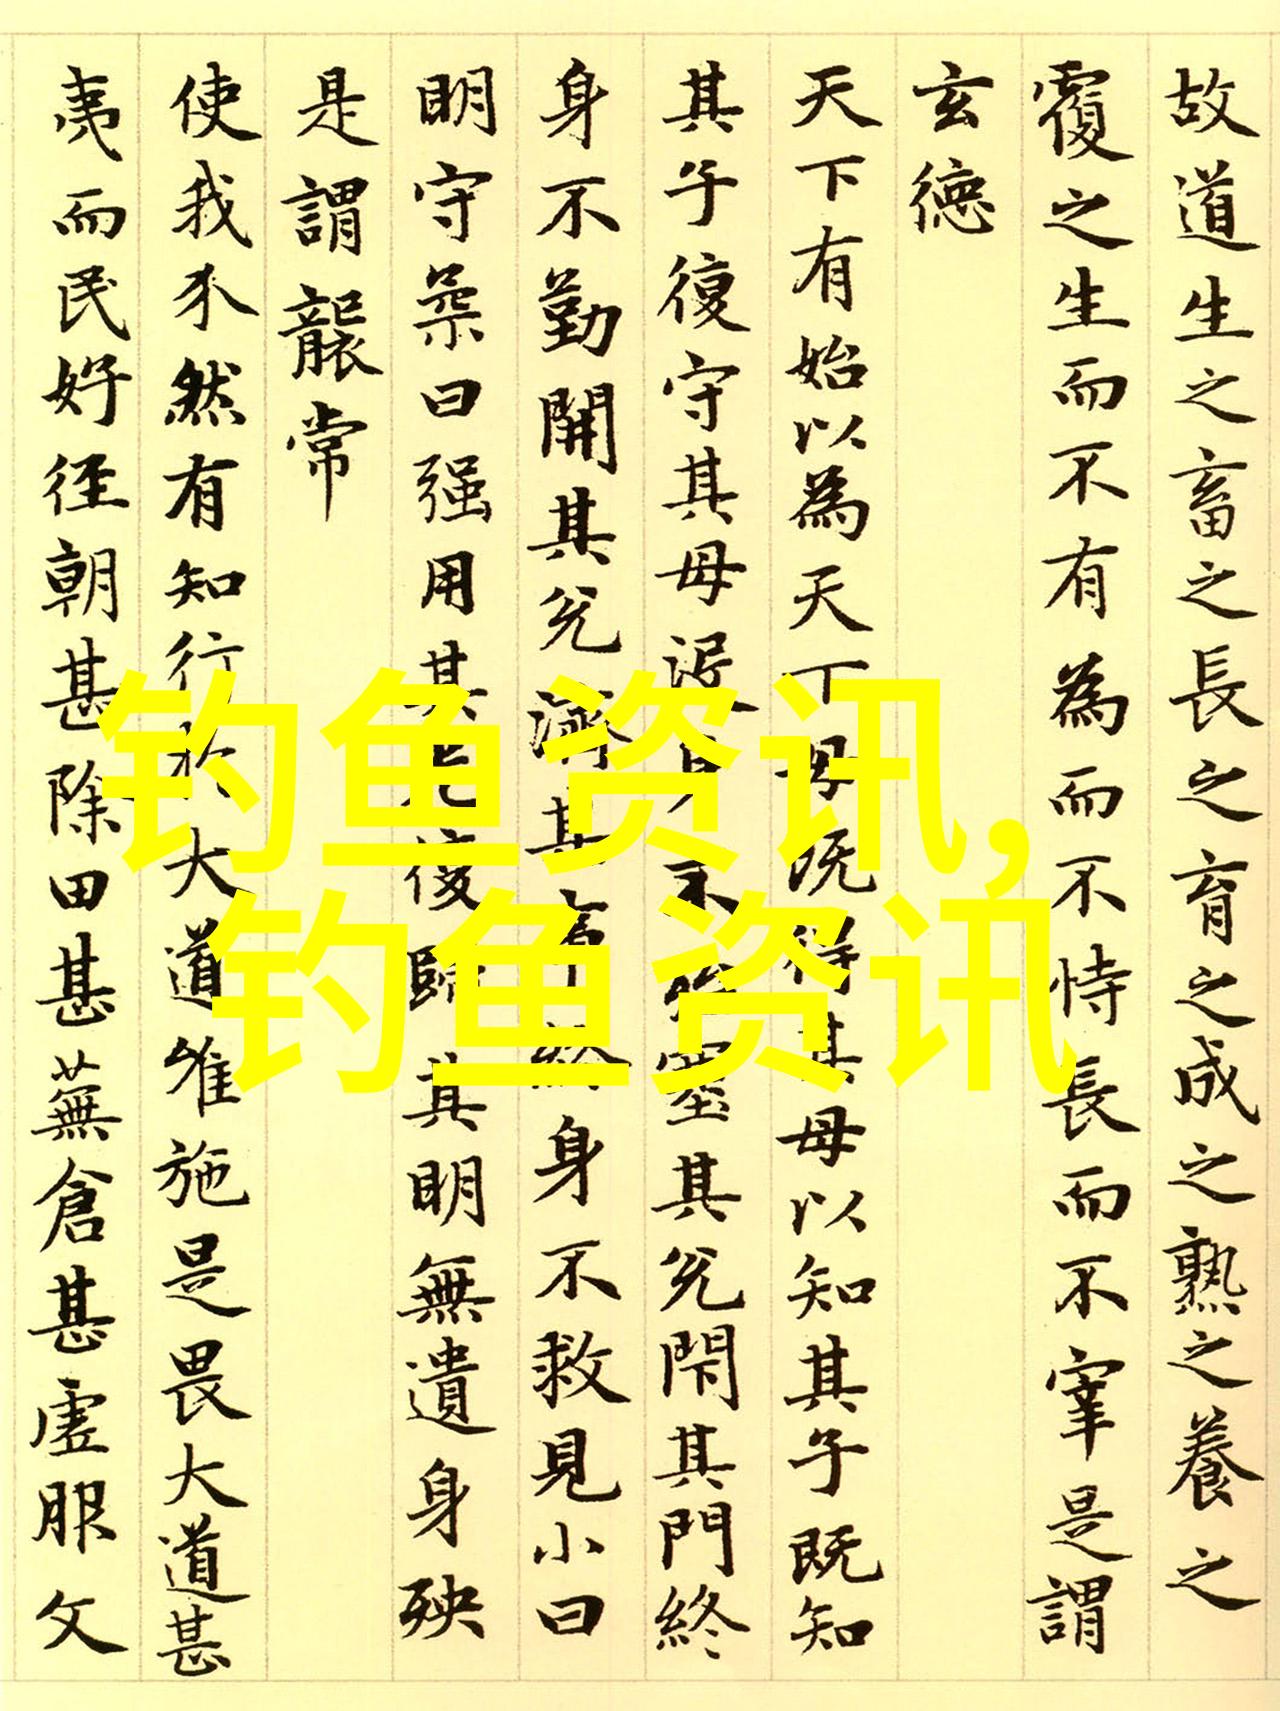 故道生之畜之長之育之成之熟之養之
覆之生而不有為而不恃長而不宰是謂
玄德
天下有始以為天下母既得其母以知其子既知
其子復守其母没身不殆塞其兌閉其門終
身不勤開其兌濟其事終身不救見小曰
明守柔曰强用其光復歸其明無遺身殃
是謂襲常
使我介然有知行於大道唯施是畏大道甚
夷而民好徑朝甚除田甚蕪倉甚虛服文
钓鱼资讯,
钓鱼资讯